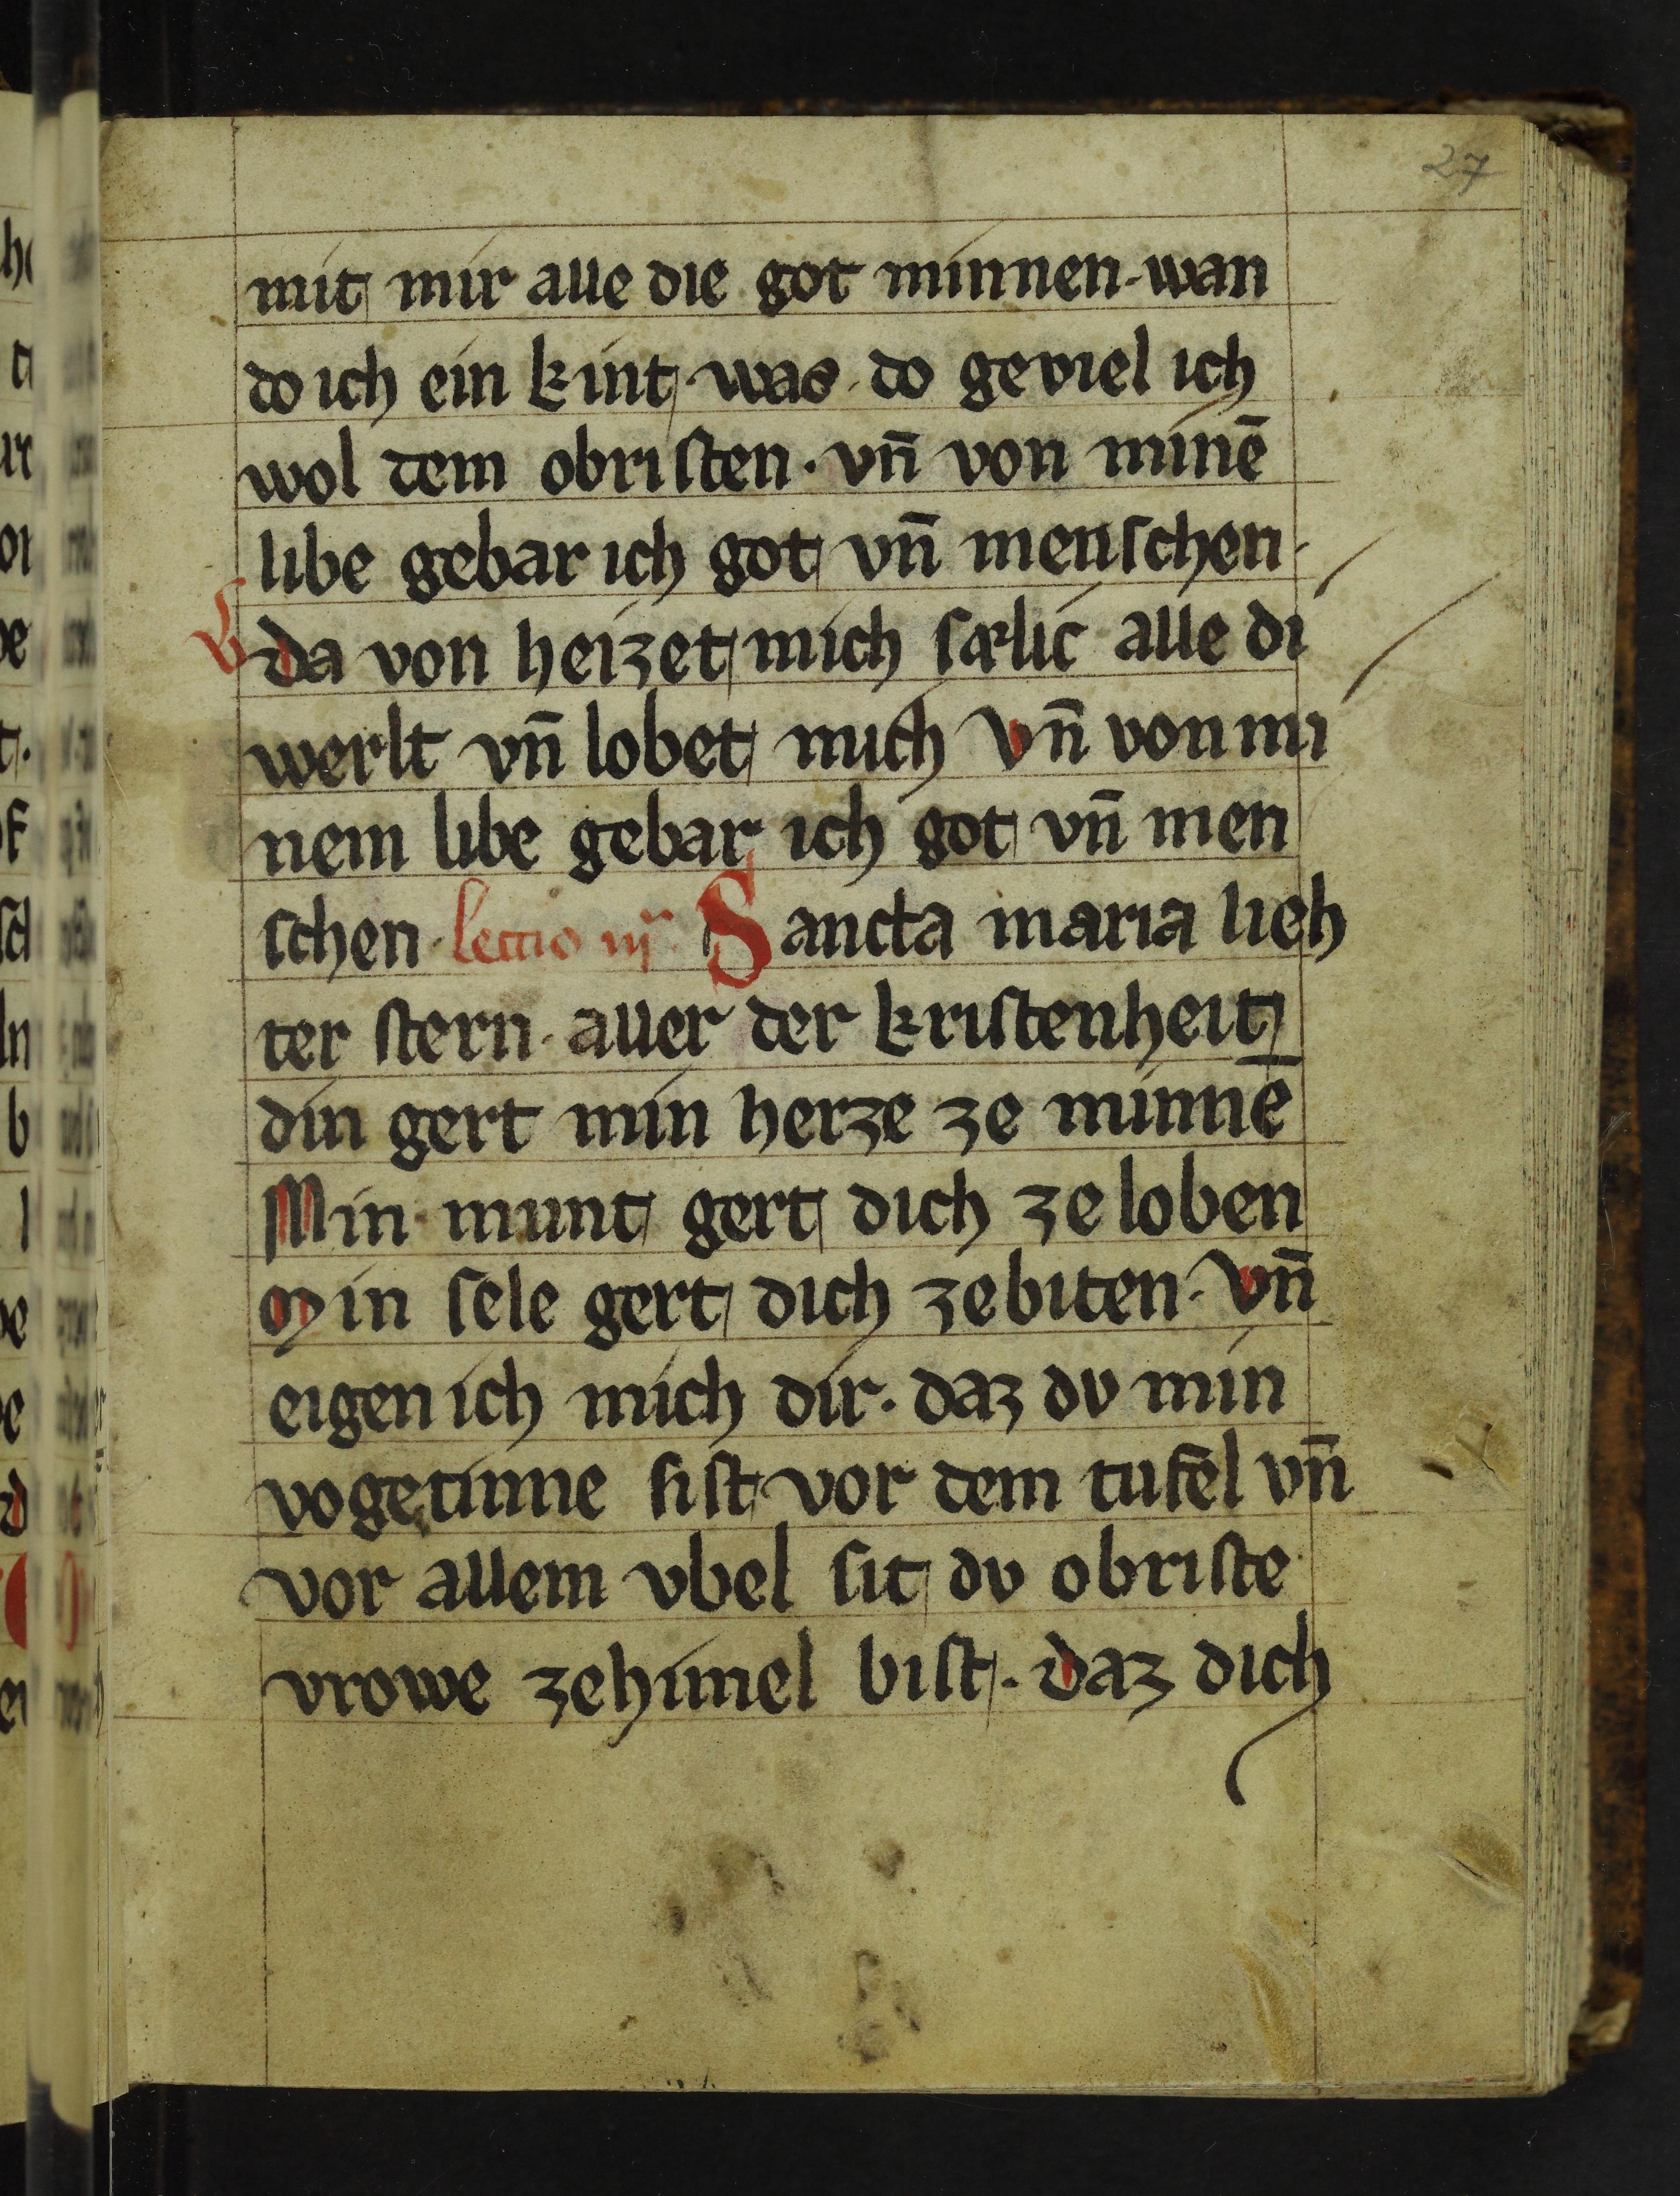 27
mit mir alle die got minnen·wan
do ich ein kint·was·do geviel ich
wol dem obristen·vn̄ von minē
libe gebar ich got vn̄ menschen·
da von heizet mich sælic alle di
werlt vn̄ lobet mich Vn̄ von mi
nem libe gebar ich got vn̄ men
schen·lectio iij· Sancta maria lieh
ter stern·aller der kristenheit
din gert min herze ze minnē
Min munt gert dich ze loben
Min sele gert dich ze biten·Vn̄
eigen ich mich dir·daz dv min
vogetinne sist vor dem tufel vn̄
vor allem vbel sit dv obriste
vrowe ze himel bist·daz dich